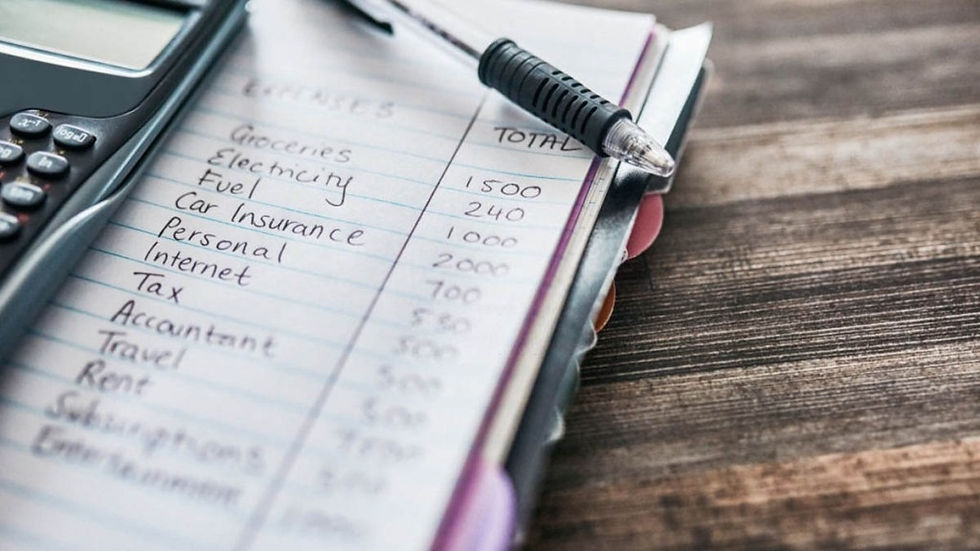 x⁻¹ log▯
ln
EXPENSES TOTAL
Groceries 1500
Electricity 240
Fuel 1000
Car Insurance 2000
Personal 700
Internet 550
Tax 500
Accountant 500
Travel 500
Rent
Subscriptions
Entertainment